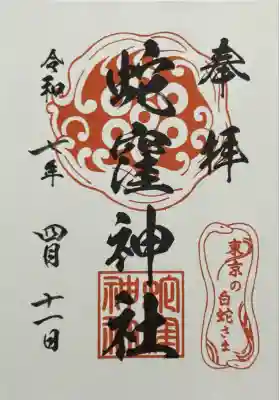 奉拝
蛇窪神社
東京の
白蛇さま
蛇窪
神社
令和七年
四月十一日